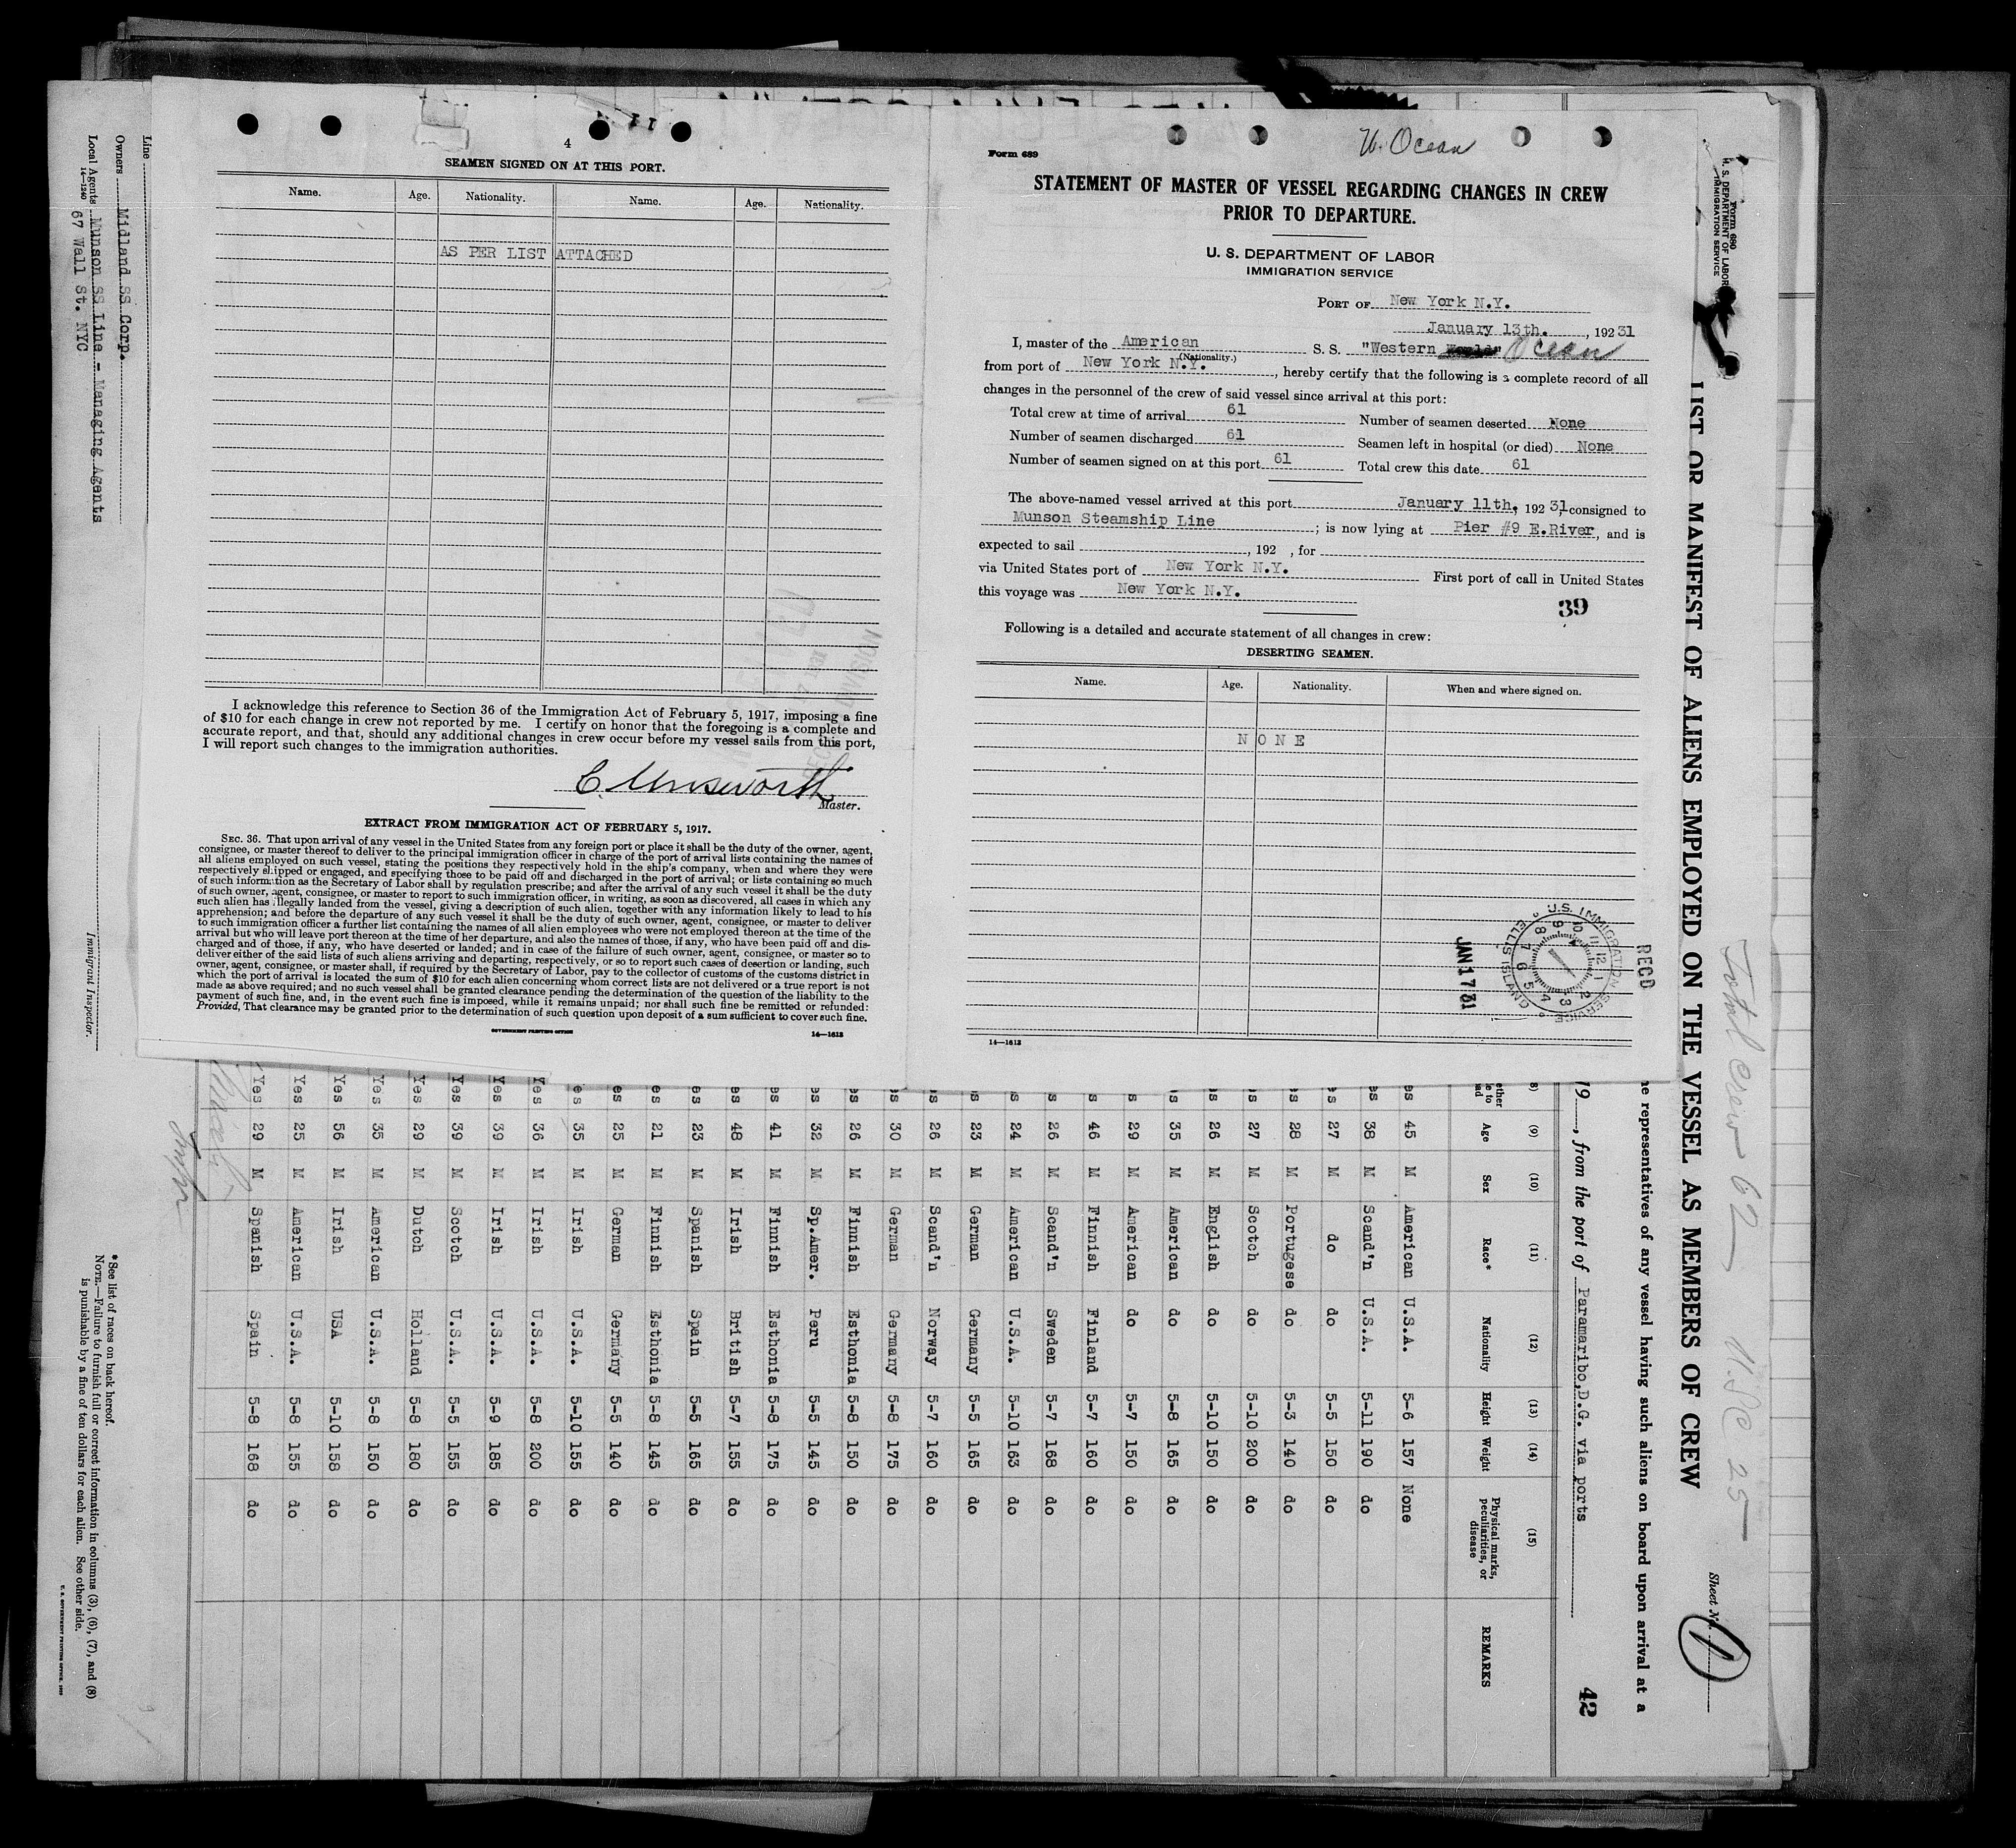 4
SEAMEN SIGNED ON AT THIS PORT.
Name. Age. Nationality. Name. Age. Nationality.
AS PER LIST ATTACHED
I acknowledge this reference to Section 36 of the Immigration Act of February 5, 1917, imposing a fine
of $10 for each change in crew not reported by me. I certify on honor that the foregoing is a complete and
accurate report, and that, should any additional changes in crew occur before my vessel sails from this port,
I will report such changes to the immigration authorities.
C. Unsworth
Master.
EXTRACT FROM IMMIGRATION ACT OF FEBRUARY 5, 1917.
SEC. 36. That upon arrival of any vessel in the United States from any foreign port or place it shall be the duty of the owner, agent,
consignee, or master thereof to deliver to the principal immigration officer in charge of the port of arrival lists containing the names of
all aliens employed on such vessel, stating the positions they respectively hold in the ship's company, when and where they were
respectively shipped or engaged, and specifying those to be paid off and discharged in the port of arrival; or lists containing so much
of such information as the Secretary of Labor shall by regulation prescribe; and after the arrival of any such vessel it shall be the duty
of such owner, agent, consignee, or master to report to such immigration officer, in writing, as soon as discovered, all cases in which any
such alien has illegally landed from the vessel, giving a description of such alien, together with any information likely to lead to his
apprehension; and before the departure of any such vessel it shall be the duty of such owner, agent, consignee, or master to deliver
to such immigration officer a further list containing the names of all alien employees who were not employed thereon at the time of the
arrival but who will leave port thereon at the time of her departure, and also the names of those, if any, who have been paid off and dis-
charged and of those, if any, who have deserted or landed; and in case of the failure of such owner, agent, consignee, or master so to
deliver either of the said lists of such aliens arriving and departing, respectively, or so to report such cases of desertion or landing, such
owner, agent, consignee, or master shall, if required by the Secretary of Labor, pay to the collector of customs of the customs district in
which the port of arrival is located the sum of $10 for each alien concerning whom correct lists are not delivered or a true report is not
made as above required; and no such vessel shall be granted clearance pending the determination of the question of the liability to the
payment of such fine, and, in the event such fine is imposed, while it remains unpaid; nor shall such fine be remitted or refunded:
Provided, That clearance may be granted prior to the determination of such question upon deposit of a sum sufficient to cover such fine.
GOVERNMENT PRINTING OFFICE
14—1613
Form 689
W. Ocean
STATEMENT OF MASTER OF VESSEL REGARDING CHANGES IN CREW
PRIOR TO DEPARTURE.
U. S. DEPARTMENT OF LABOR
IMMIGRATION SERVICE
PORT OF New York N.Y.
January 13th. , 192 31
I, master of the American S. S. "Western World" Ocean
(Nationality.)
from port of New York N.Y. , hereby certify that the following is a complete record of all
changes in the personnel of the crew of said vessel since arrival at this port:
Total crew at time of arrival 61 Number of seamen deserted None
Number of seamen discharged 61 Seamen left in hospital (or died) None
Number of seamen signed on at this port 61 Total crew this date 61
The above-named vessel arrived at this port January 11th, 192 31, consigned to
Munson Steamship Line ; is now lying at Pier #9 E.River, and is
expected to sail , 192 , for
via United States port of New York N.Y. First port of call in United States
this voyage was New York N.Y.
39
Following is a detailed and accurate statement of all changes in crew:
DESERTING SEAMEN.
Name. Age. Nationality. When and where signed on.
N O N E
REC'D
U.S. IMMIGRATION SERVICE
ELLIS ISLAND
12 1 2 3 4 5 6 7 8 9 10 11
JAN 17 31
14—1613
Form 680
U. S. DEPARTMENT OF LABOR
IMMIGRATION SERVICE
Total crew 62 — U.S.C 25 —
Sheet No. 1
LIST OR MANIFEST OF ALIENS EMPLOYED ON THE VESSEL AS MEMBERS OF CREW
he representatives of any vessel having such aliens on board upon arrival at a
19 , from the port of Paramaribo,D.G. via ports
42
(8) (9) (10) (11) (12) (13) (14) (15)
ether le to ad Age Sex Race* Nationality Height Weight Physical marks, peculiarities, or disease REMARKS
es 45 M American U.S.A. 5-6 157 None
es 38 M Scand'n U.S.A. 5-11 190 do
es 27 M do do 5-5 150 do
es 28 M Portugese do 5-3 140 do
s 27 M Scotch do 5-10 200 do
s 26 M English do 5-10 150 do
s 35 M American do 5-8 165 do
s 29 M American do 5-7 150 do
s 46 M Finnish Finland 5-7 160 do
s 26 M Scand'n Sweden 5-7 168 do
s 24 M American U.S.A. 5-10 163 do
s 23 M German Germany 5-5 165 do
s 26 M Scand'n Norway 5-7 160 do
s 30 M German Germany 5-8 175 do
es 26 M Finnish Esthonia 5-8 150 do
es 32 M Sp.Amer. Peru 5-5 145 do
es 41 M Finnish Esthonia 5-8 175 do
es 48 M Irish British 5-7 155 do
es 23 M Spanish Spain 5-5 165 do
es 21 M Finnish Esthonia 5-8 145 do
es 25 M German Germany 5-5 140 do
es 35 M Irish U.S.A. 5-10 155 do
Yes 36 M Irish U.S.A. 5-8 200 do
Yes 39 M Irish U.S.A. 5-9 185 do
Yes 39 M Scotch U.S.A. 5-5 155 do
Yes 29 M Dutch Holland 5-8 180 do
Yes 35 M American U.S.A. 5-8 150 do
Yes 56 M Irish USA 5-10 158 do
Yes 25 M American U.S.A. 5-8 155 do
Yes 29 M Spanish Spain 5-8 168 do
Line
Owners Midland SS Corp.
Local Agents Munson SS Line - Managing Agents
14—1240
67 Wall St. NYC
Immigrant Inspector.
*See list of races on back hereof.
NOTE.—Failure to furnish full or correct information in columns (3), (6), (7), and (8)
is punishable by a fine of ten dollars for each alien. See other side.